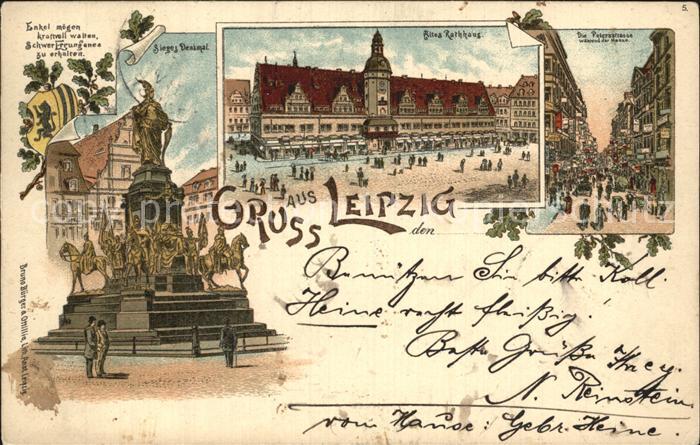 5.
Enkel mögen
kraftvoll walten,
Schwer Errungenes
zu erhalten.
Sieges Denkmal.
Altes Rathhaus.
Die Petersstrasse
während der Messe.
GRUSS AUS LEIPZIG
den
Benützen Sie bitte Koll.
Heine recht fleißig!
Beste Grüße Ihres
N. Reinstein.
vom Hause: Gebr. Heine.
Bruno Bürger & Ottillie, Lith. Anst. Leipzig.